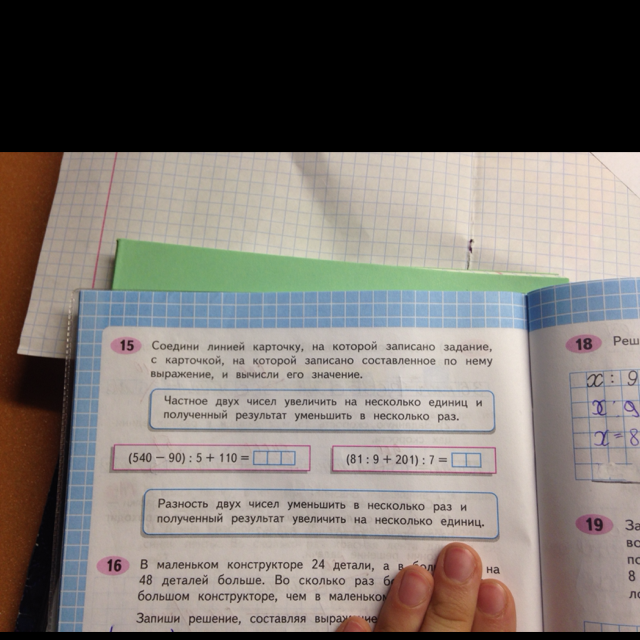 15 Соедини линией карточку, на которой записано задание,
с карточкой, на которой записано составленное по нему
выражение, и вычисли его значение.
Частное двух чисел увеличить на несколько единиц и
полученный результат уменьшить в несколько раз.
(540 − 90) : 5 + 110 =
(81 : 9 + 201) : 7 =
Разность двух чисел уменьшить в несколько раз и
полученный результат увеличить на несколько единиц.
16 В маленьком конструкторе 24 детали, а в на
48 деталей больше. Во сколько раз
большом конструкторе, чем в маленьком
Запиши решение, составляя
18 Реш
x : 9
x · 9
x = 8
19 За
во
по
8
ло